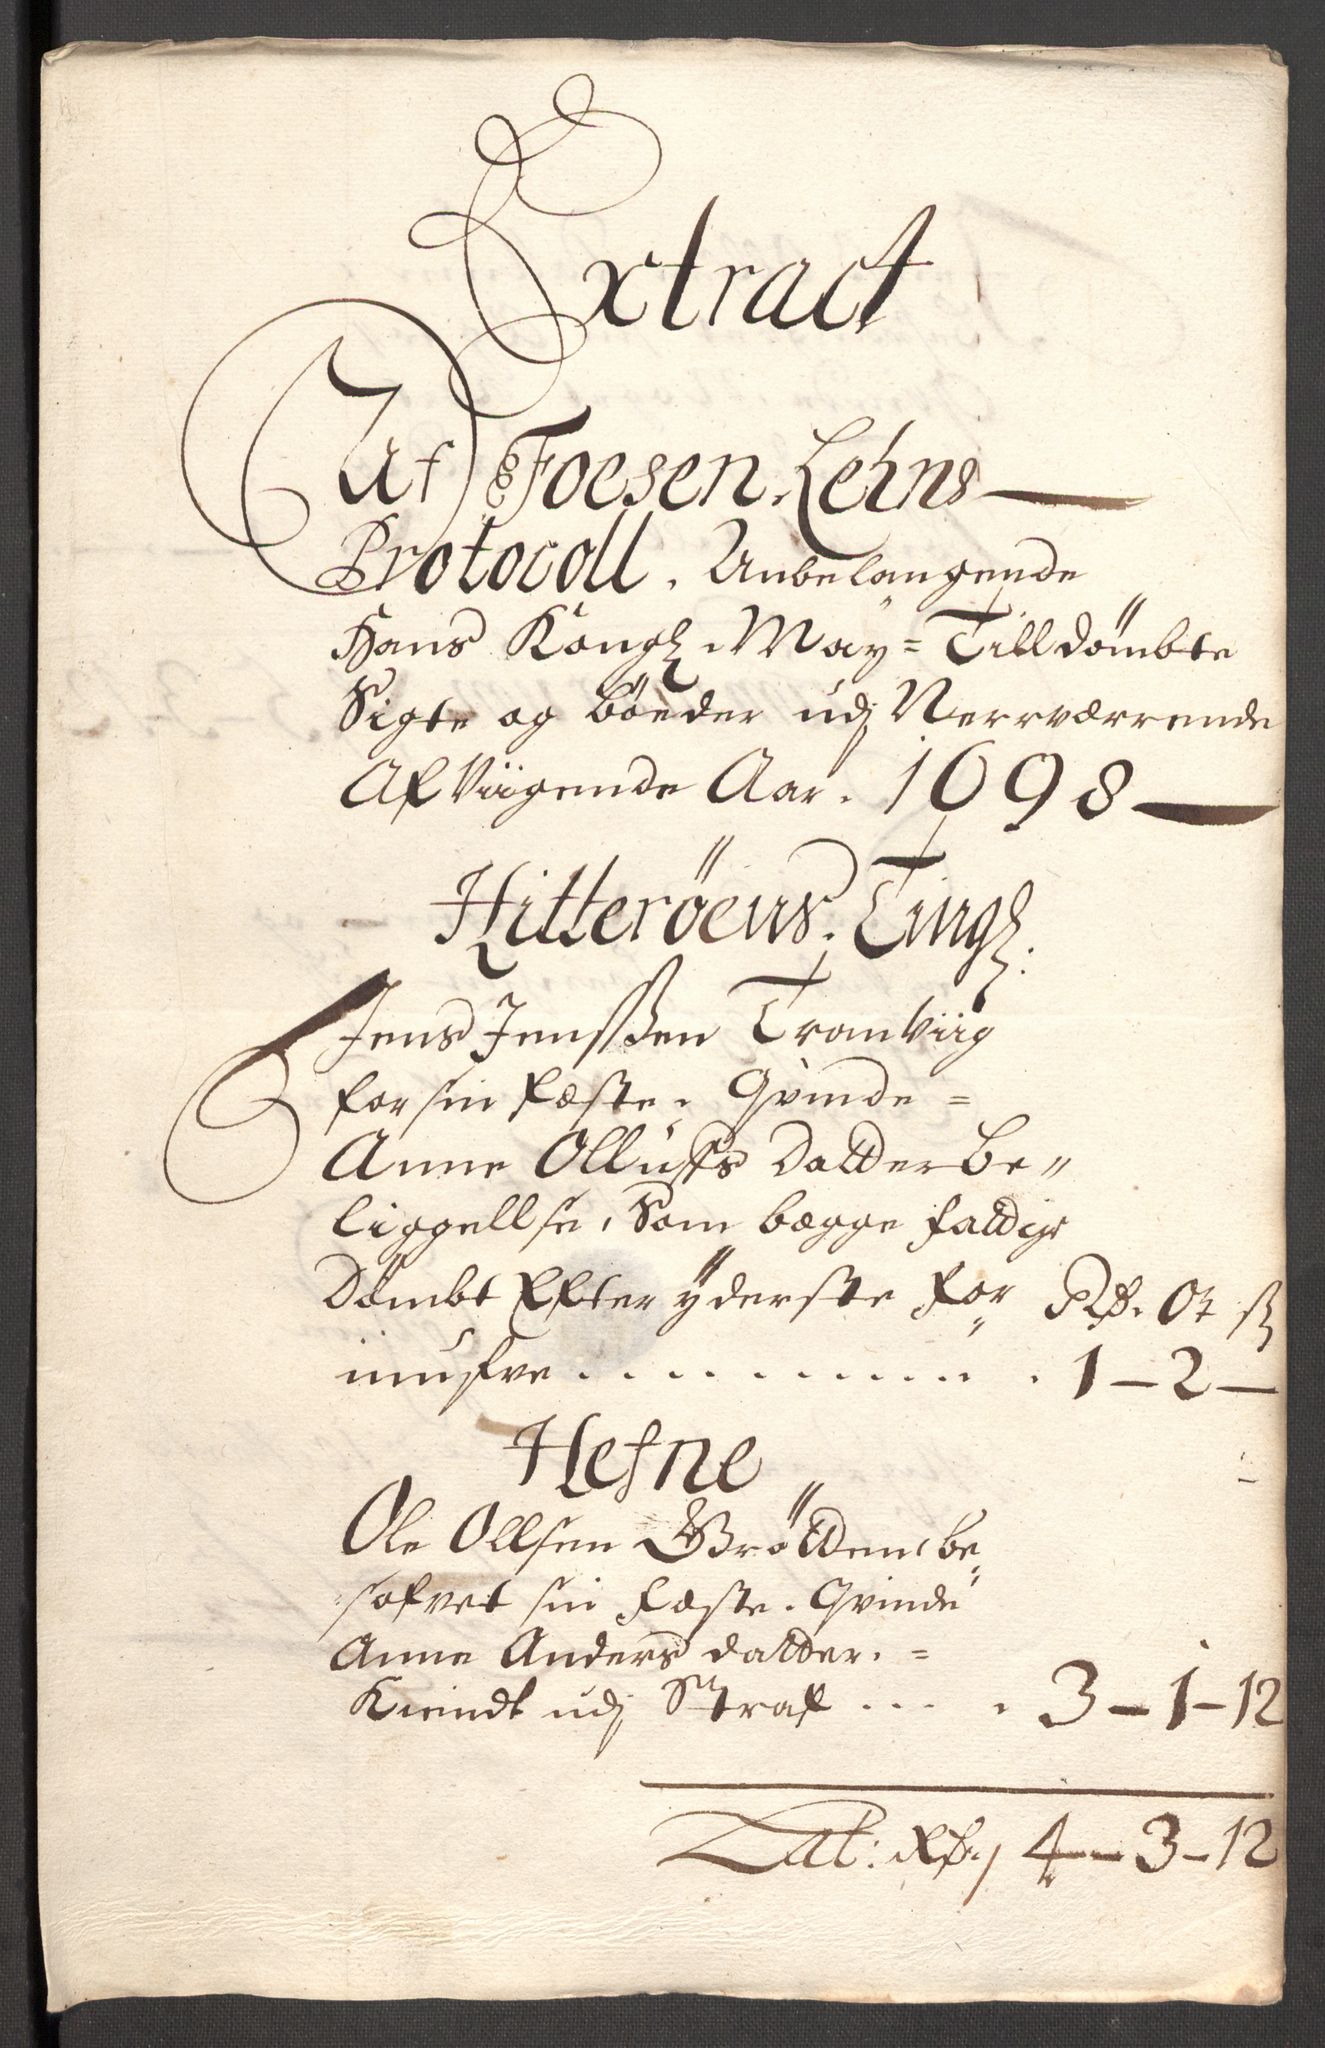 Extract
Af Foesen Lehns
Protocoll. Anbelangende
Hans Kongl. May= Tilldömbte
Sigte og böeder udj Nerrværrende
Afviigende Aar. 1698
Hitteröens. Tingl:
Jens Jenssen Tranviig
for sin fæste. Qvinde=
Anne Ollufs datter be„
liggellse, Som begge fattige
Dömbt Efter yderste For„ Rd. Ort ß
muefve . . . . . . . . . . 1 – 2 –
Hefne
Ole Ollsen Grötten, be„
sofvet sin fæste. Qvinde
Anne Anders datter. =
Kiendt udj Straf . . . . 3 – 1 – 12
Lat: Rd. 4 – 3 – 12